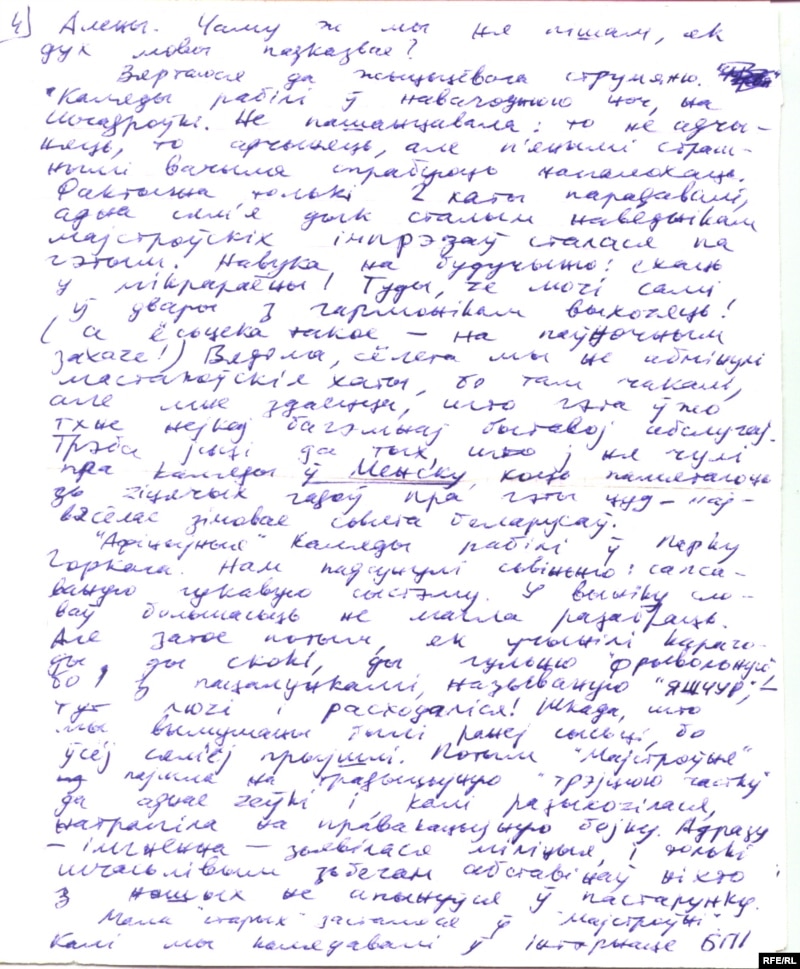 4) Алены. Чаму ж мы ня пішам, як
дух мовы падказвае?
Вяртаюся да жыцьцёвага струменю.
"Каляды рабілі ў навагоднюю ноч, на
Шчадроўкі. Не пашанцавала: то не адчы-
няць, то адчыняць, але п'янымі страш-
нымі вачыма спрабуюць напалохаць.
Фактычна толькі 2 хаты парадавалі,
адна сям'я дык сталым наведнікам
майстроўскіх імпрэзаў сталася па
гэтым. Навука на будучыню: ехаць
у мікрараёны! Туды, дзе людзі самі
ў двары з гармонікам выходзяць!
(а ёсьцека такое – на паўночным
захадзе!) Вядома, сёлета мы не абмінулі
мастакоўскія хаты, бо там чакалі,
але мне здаецца, што гэта ўжо
тхне нейкай багемнай бытавой абслугай.
Трэба ісьці да тых, што й ня чулі
пра каляды ў Менску, каб памяталі
зь дзіцячых гадоў пра гэты цуд – най-
вясёлае зімовае сьвята беларусаў.
"Афіцыйныя" Каляды рабілі ў парку
Горкага. Нам падсунулі сьвіньню: сапса-
ваную гукавую сыстэму. У выніку сло-
ваў большасьць не магла разабраць.
Але затое потым, як учынілі карага-
ды, ды скокі, ды гульцю "фрывольную"
бо з пацалункамі, называную "Яшчур", –
тут людзі і расходзіліся! Шкада, што
мы вымушаны былі раней сысьці, бо
ўсёй сям'ёй прыйшлі. Потым "Майстроўня"
пайшла на традыцыйную "трэйцюю частку"
да аднае дзеўкі і калі разыходзілася,
натрапіла на правакацыйную бойку. Адразу
– імгненна – зьявілася міліцыя, і толькі
шчасьлівым зьбегам абставінаў ніхто
з нашых не апынуўся ў пастарунку.
Мала "старых" засталося ў "Майстроўні".
Калі мы калядавалі ў інтэрнаце БПІ
RFE/RL